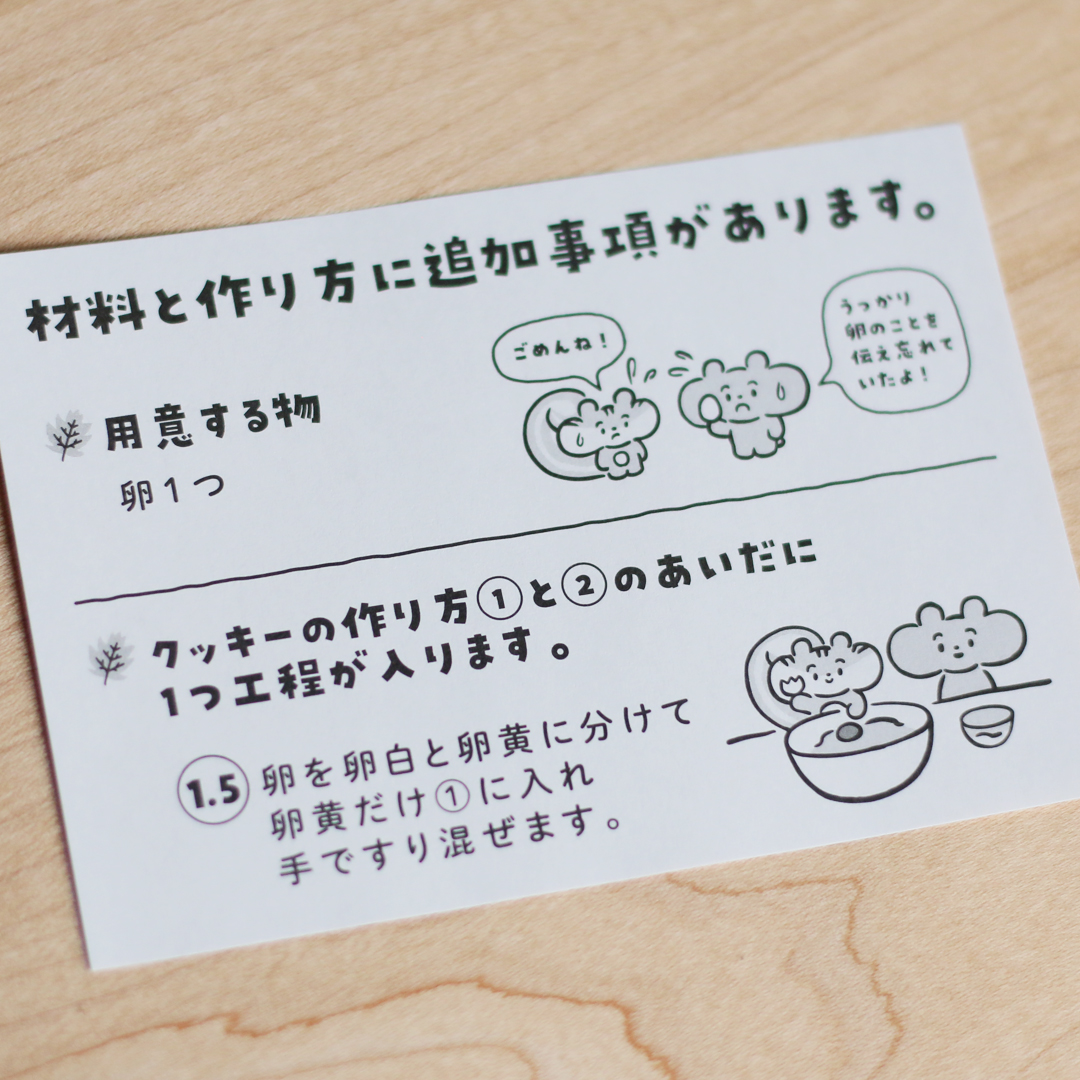 材料と作り方に追加事項があります。
ごめんね！
うっかり
卵のことを
伝え忘れて
いたよ！
用意する物
卵1つ
クッキーの作り方①と②のあいだに
1つ工程が入ります。
1.5 卵を卵白と卵黄に分けて
卵黄だけ①に入れ
手ですり混ぜます。